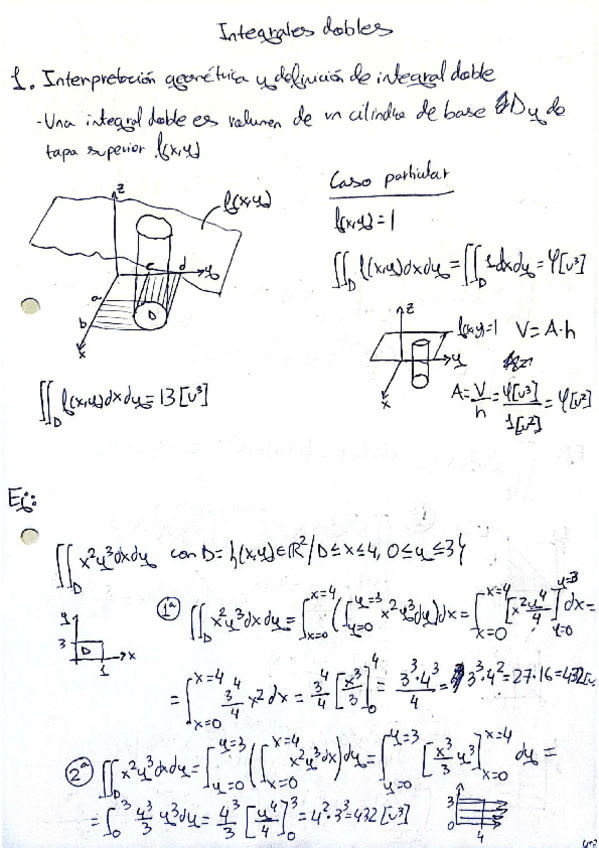 Integrales dobles
1. Interpretación geométrica y definición de integral doble
-Una integral doble es volumen de un cilindro de base D y de
tapa superior f(x,y)
Caso particular
f(x,y)=1
∬_D f(x,y)dxdy=∬_D 1dxdy=4[u³]
z
f(x,y)
c d y
a
b
D
x
z
f(x,y)=1 V=A·h
y
x
A=V/h=4[u³]/1[u²]=4[u²]
∬_D f(x,y)dxdy=13[u³]
Ej:
∬_D x²y³dxdy con D={(x,y)∈ℝ²/0≤x≤4, 0≤y≤3}
y
3
D
1
x
1ª ∬_D x²y³dxdy=∫_{x=0}^{x=4}(∫_{y=0}^{y=3}x²y³dy)dx=∫_{x=0}^{x=4}[x²y⁴/4]_{y=0}^{y=3}dx=
=∫_{x=0}^{x=4} 3⁴/4 x²dx=3⁴/4[x³/3]_0^4=3³·4³/4=3³·4²=27·16=432[u
2ª ∬_D x²y³dxdy=∫_{y=0}^{y=3}(∫_{x=0}^{x=4}x²y³dx)dy=∫_{y=0}^{y=3}[x³/3 y³]_{x=0}^{x=4}dy=
=∫_0^3 4³/3 y³dy=4³/3[y⁴/4]_0^3=4²·3³=432[u³]
3
0
4